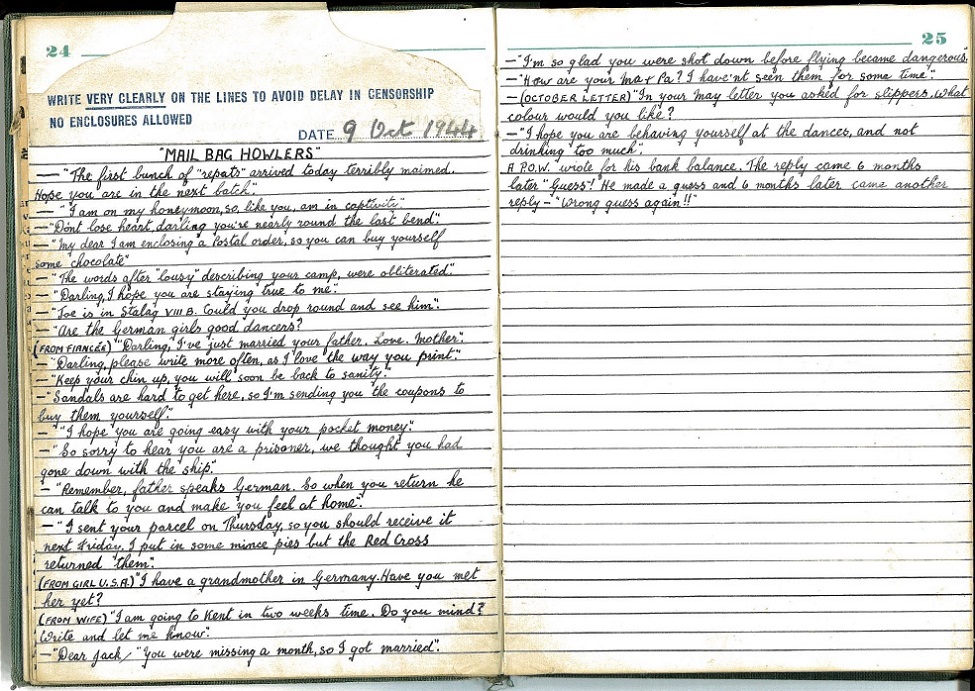 24
WRITE VERY CLEARLY ON THE LINES TO AVOID DELAY IN CENSORSHIP
NO ENCLOSURES ALLOWED
DATE 9 Oct 1944
"MAIL BAG HOWLERS"
— "The first bunch of "repats" arrived today terribly maimed.
Hope you are in the next batch".
— "I am on my honeymoon, so, like you, am in captivity".
— "Dont lose heart, darling you're nearly round the last bend".
— "My dear I am enclosing a Postal order, so you can buy yourself
some chocolate"
— "The words after "lousy" describing your camp, were obliterated".
— "Darling, I hope you are staying true to me".
— "Joe is in Stalag VIII B. Could you drop round and see him".
— "Are the German girls good dancers?
(FROM FIANCÉE) "Darling, I've just married your father. Love. Mother".
— "Darling, please write more often, as I love the way you print"
— "Keep your chin up, you will soon be back to sanity."
— "Sandals are hard to get here, so I'm sending you the coupons to
buy them yourself".
— "I hope you are going easy with your pocket money".
— "So sorry to hear you are a prisoner, we thought you had
gone down with the ship".
— "Remember, father speaks German. So when you return he
can talk to you and make you feel at home".
— "I sent your parcel on Thursday, so you should receive it
next Friday. I put in some mince pies but the Red Cross
returned them".
(FROM GIRL U.S.A.) "I have a grandmother in Germany. Have you met
her yet?
(FROM WIFE) "I am going to Kent in two weeks time. Do you mind?
Write and let me know".
— "Dear Jack/ "You were missing a month, so I got married".
25
— "I'm so glad you were shot down before flying became dangerous.
— "How are your Ma + Pa? I have'nt seen them for some time".
— (OCTOBER LETTER) "In your May letter you asked for slippers. What
colour would you like?
— "I hope you are behaving yourself at the dances, and not
drinking too much".
A P.O.W. wrote for his bank balance. The reply came 6 months
later "Guess"! He made a guess and 6 months later came another
reply - "Wrong guess again!!"